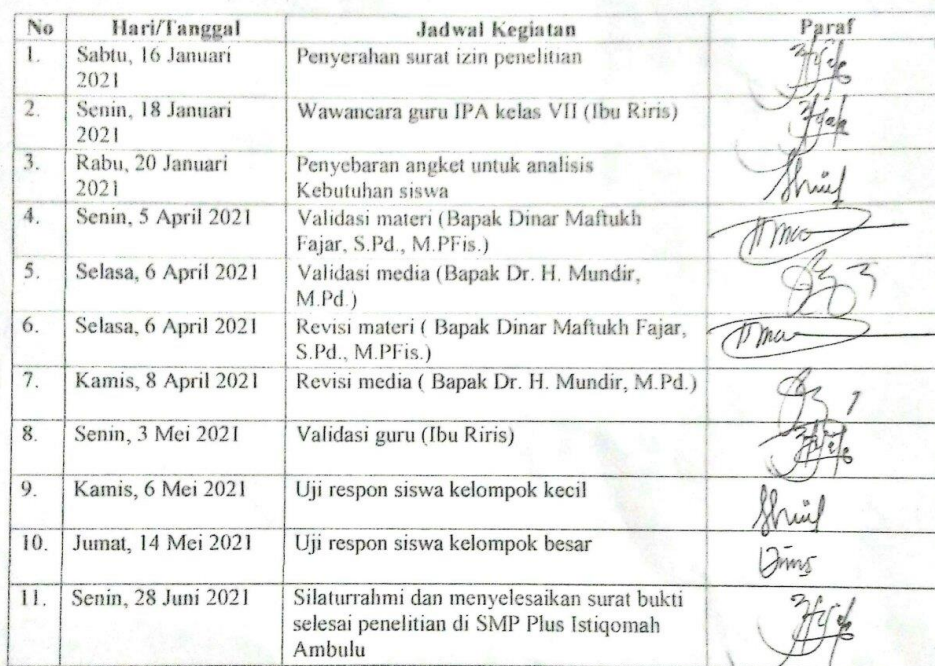 No Hari/Tanggal Jadwal Kegiatan Paraf
1. Sabtu, 16 Januari Penyerahan surat izin penelitian
2021
2. Senin, 18 Januari Wawancara guru IPA kelas VII (Ibu Riris)
2021
3. Rabu, 20 Januari Penyebaran angket untuk analisis
2021 Kebutuhan siswa
4. Senin, 5 April 2021 Validasi materi (Bapak Dinar Maftukh
Fajar, S.Pd., M.PFis.)
5. Selasa, 6 April 2021 Validasi media (Bapak Dr. H. Mundir,
M.Pd.)
6. Selasa, 6 April 2021 Revisi materi ( Bapak Dinar Maftukh Fajar,
S.Pd., M.PFis.)
7. Kamis, 8 April 2021 Revisi media ( Bapak Dr. H. Mundir, M.Pd.)
8. Senin, 3 Mei 2021 Validasi guru (Ibu Riris)
9. Kamis, 6 Mei 2021 Uji respon siswa kelompok kecil
10. Jumat, 14 Mei 2021 Uji respon siswa kelompok besar
11. Senin, 28 Juni 2021 Silaturrahmi dan menyelesaikan surat bukti
selesai penelitian di SMP Plus Istiqomah
Ambulu